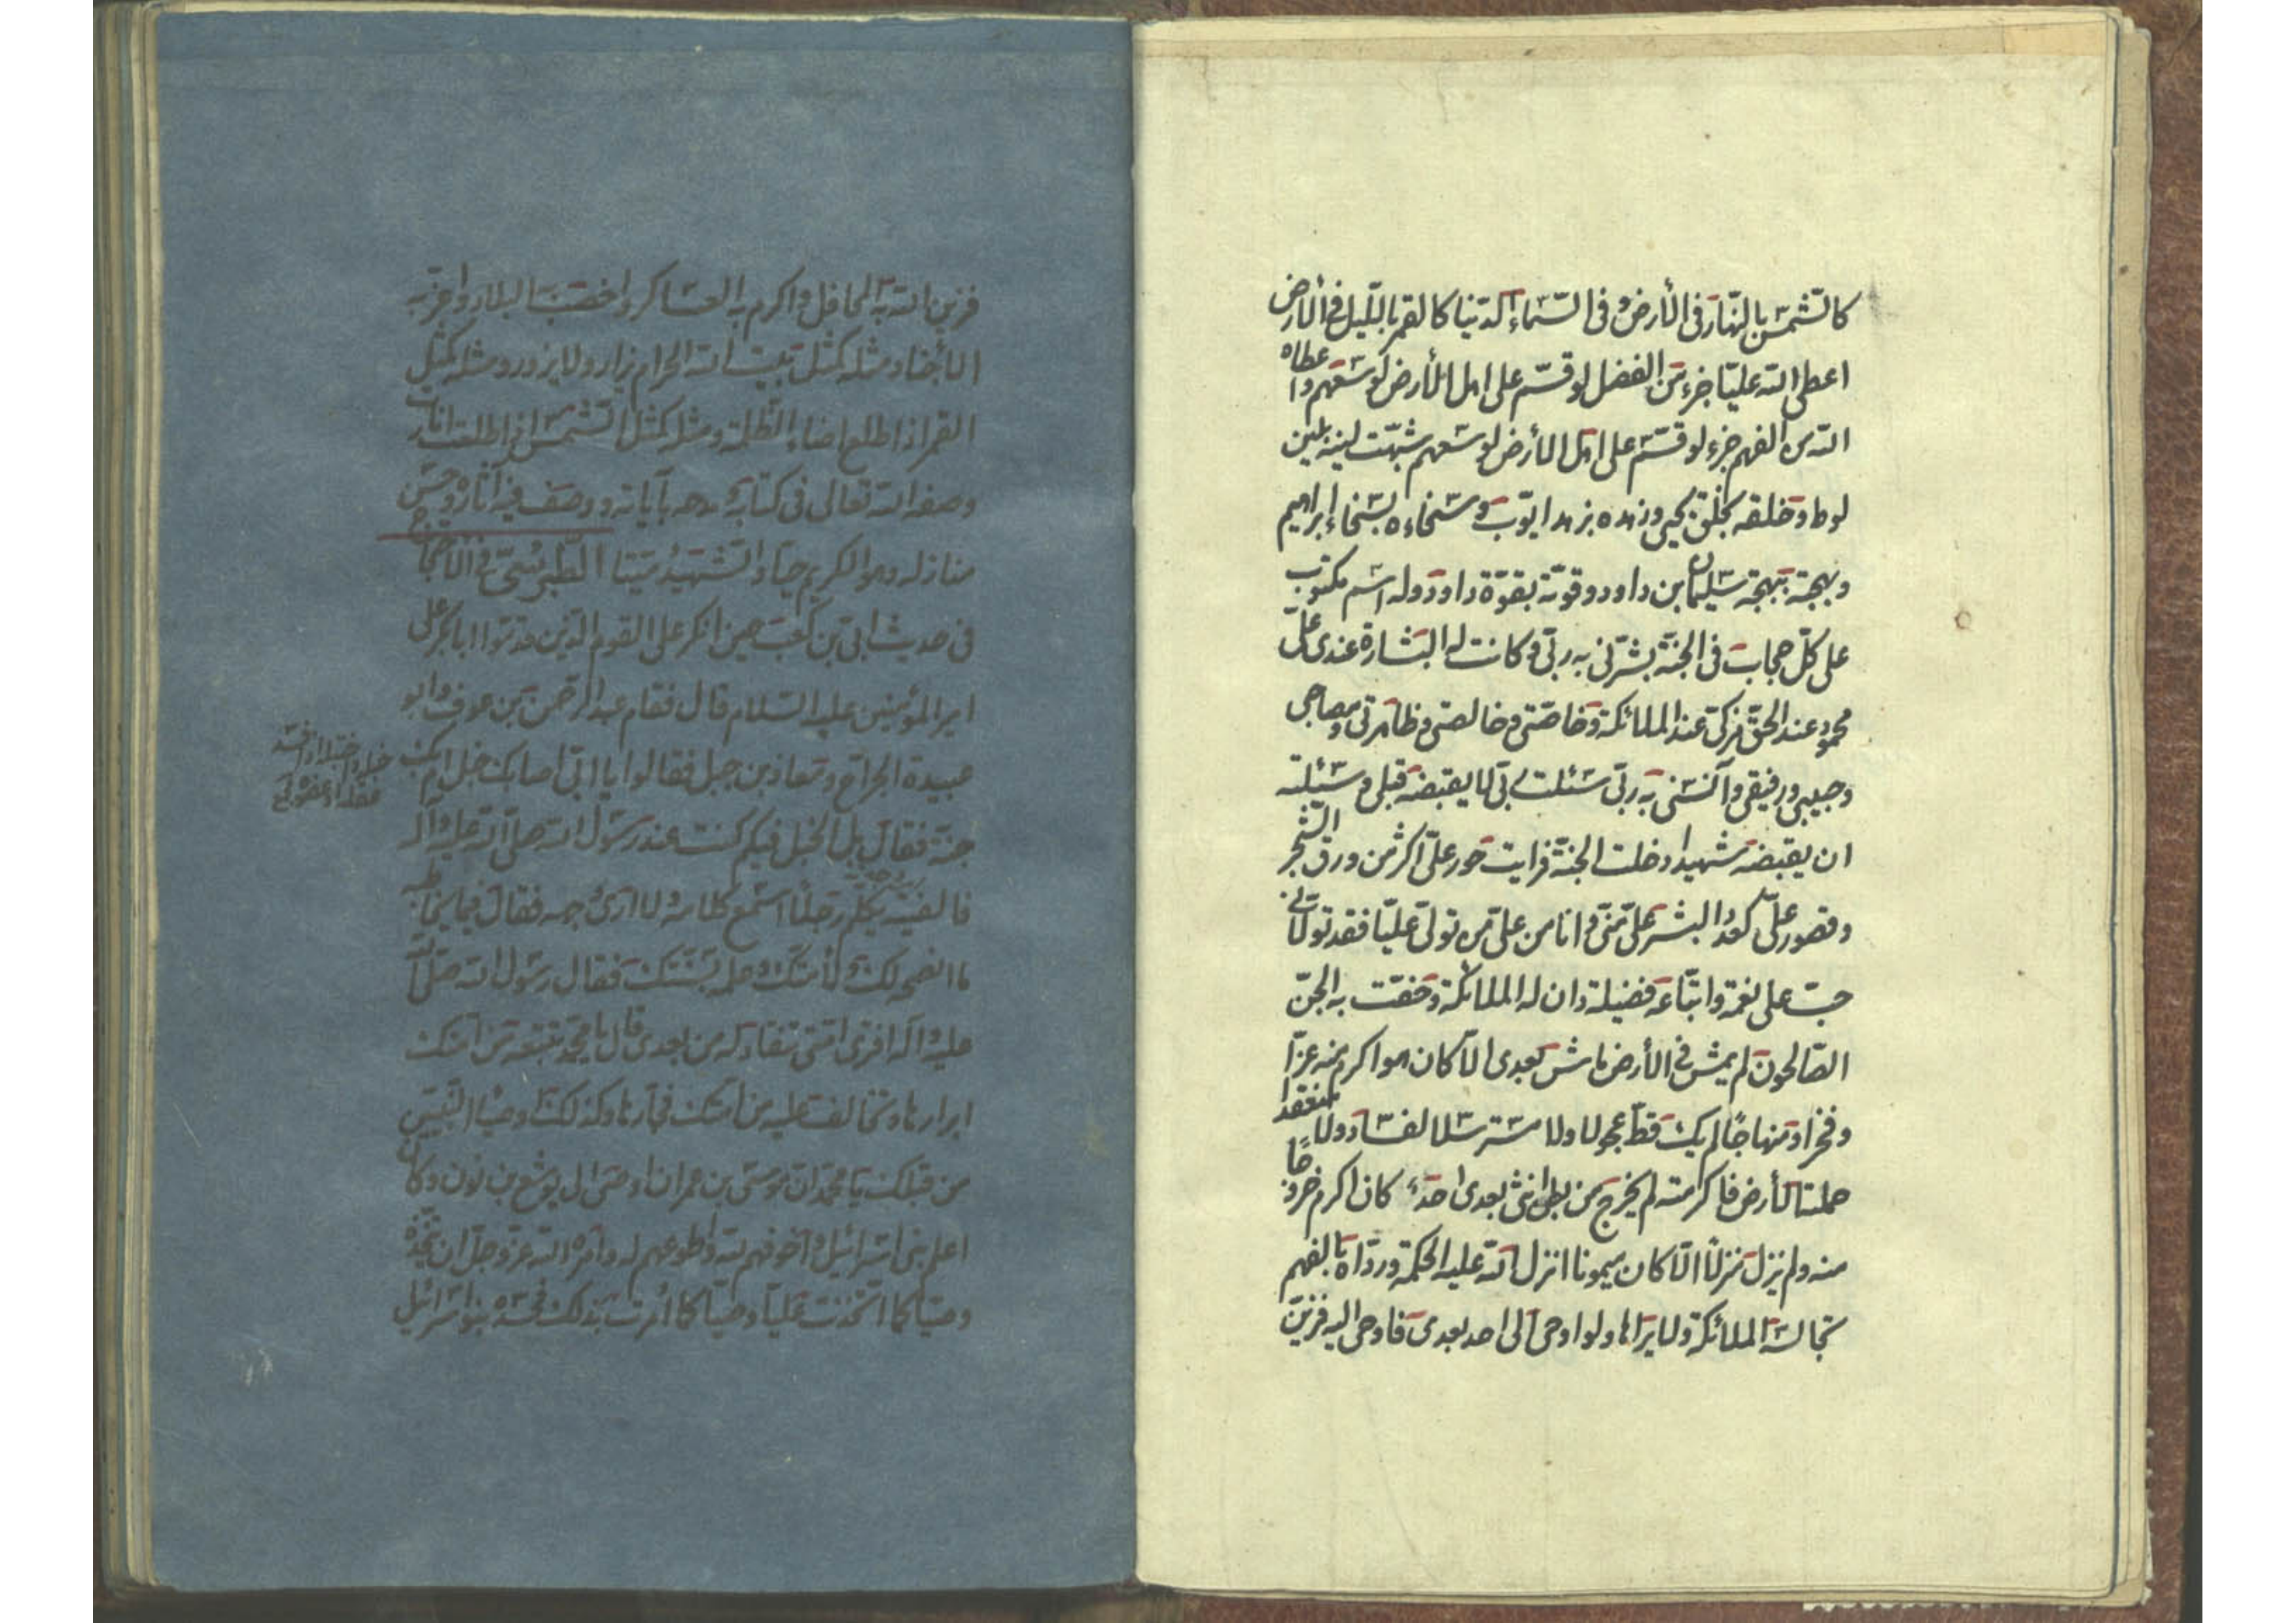 كالشّمس بالنّهار فى الأرض و فى السّماء الدّنيا كالقمر باللّيل فى الأرض
اعطى الله عليّا جزء من الفضل لو قسّم على اهل الأرض لوسعهم و اعطاه
الله من الفهم جزء لو قسّم على اهل الأرض لوسعهم شبّهت لينه بلين
لوط و خلقه بخلق يحيى و زهده بزهد ايّوب و سخاءه بسخاء إبراهيم
و بهجته ببهجة سليمان بن داود و قوّته بقوّة داود و له اسم مكتوب
على كلّ حجاب فى الجنّة بشّرنى به ربّى و كانت له البشارة عندى علىّ
محمود عند الحق مزكّى عند الملائكة و خاصّتى و خالصتى و ظاهرتى و مصباحى
و حبيبى و رفيقى و آنسنى به ربّى سئلت ربّى ان لا يقبضه قبلى و سئلته
ان يقبضه شهيدا دخلت الجنّة فرايت حور علىّ اكثر من ورق الشّجر
و قصور علىّ كعدد البشر علىّ منّى و انا من علىّ من تولّى عليّا فقد تولّانى
حبّ على نعمة و اتباعه فضيلة دان له الملائكة و حفّت به الجنّ
الصّالحون لم يمش فى الأرض ماش بعدى الّا كان هو اكرم منه عزّا
و فخرا و منهاجا لم يك قطّ عجولا و لا مسترسلا لفساد و لا متعقدا
حملته الأرض فاكرمته لم يخرج من بطن انثى بعدى احد كان اكرم خروجا
منه و لم ينزل منزلا الّا كان ميمونا انزل الله عليه الحكمة و ردّاه بالفهم
تجالسه الملائكة و لا يراها و لو اوحى الى احد بعدى فاوحى اليه فزيّن
فزين الله به المحافل و اكرم به العساكر و اخصب به البلاد و اعزّ به
الأجناد مثله كمثل بيت الله الحرام يزار و لا يزور و مثله كمثل
القمر اذا طلع اضاء الظّلمة و مثله كمثل الشّمس اذا طلعت انارت
وصفه الله تعالى فى كتابه و مدحه بآياته و وصف فيه آثاره و حسن
منازله و هو الكريم حيّا و الشّهيد ميّتا الطّبرسىّ فى الأحتجاج
فى حديث ابىّ بن كعب حين انكر على القوم الّذين قدّموا ابابكر على
امير المؤمنين عليه السّلام قال فقام عبد الرّحمن بن عوف و ابو
عبيدة الجراح و معاذ بن جبل فقالوا يا ابىّ اصابك خبل ام بك
خبله و اختبله اذا افسد
عقله او عضوه
جنّة فقال بل الخبل فيكم كنت عند رسول الله صلى الله عليه و آله
فالفيته يكلّم رجلا اسمع كلامه و لا ارى وجهه فقال فيما يخاطبه
ما انصحه لك و لأمّتك و اعلمه بسنّتك فقال رسول الله صلّى الله
عليه و آله افترى امّتى تنقاد له من بعدى قال يا محمّد يتبعه من امّتك
ابرارها و يخالف عليه من امّتك فجّارها و كذلك اوصياء النّبيّين
من قبلك يا محمّد انّ موسى بن عمران اوصى الى يوشع بن نون و كان
اعلم بنى اسرائيل و اخوفهم لله و اطوعهم له و امره الله عزّ و جلّ ان يتّخذه
وصيّا كما اتّخذت عليّا وصيّا كما أمرت بذلك فحسده بنو اسرائيل